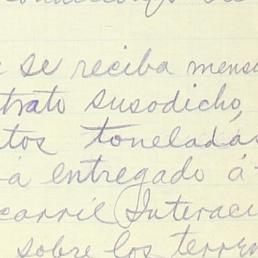 se reciba mensu
trato susodicho,
tos toneladas
á entregado á
carril Interaci
sobre los terren